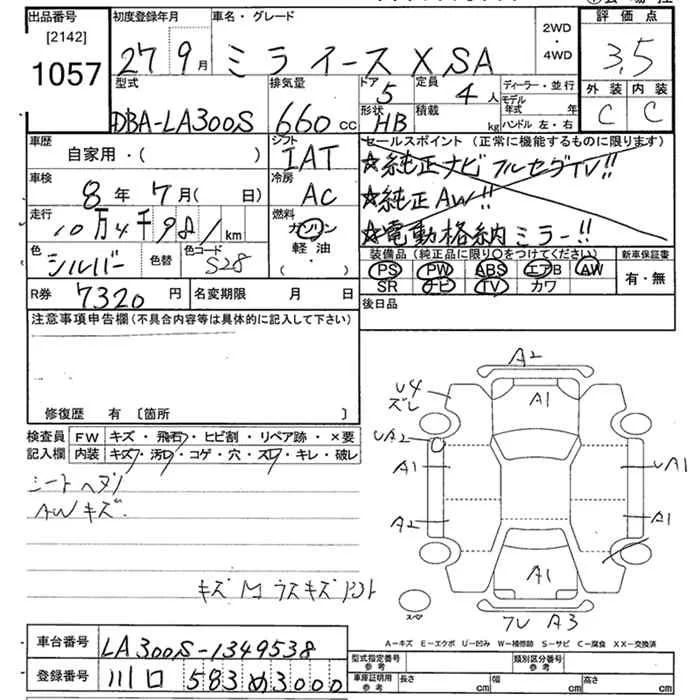 出品番号 初度登録年月 車名・グレード 2WD・4WD 評価点
[2142]
1057 27 9月 ミライース X SA 3.5
型式 排気量 ドア 5 定員 4人 ディーラー・並行 外装 内装
DBA-LA300S 660cc 形状 HB 積載 kg モデル年式 年 C C
ハンドル 左・右
車歴 シフト セールスポイント (正常に機能するものに限ります)
自家用・( ) IAT ☆純正ナビ フルセグTV!!
車検 8年7月( 日) 冷房 AC ☆純正AW!!
走行 10万4千981km 燃料 ガソリン ☆電動格納ミラー!!
色 シルバー 色替 色コード S28 軽油 ・( )
装備品 (純正品に限り○をつけてください) 新車保証書
PS PW ABS エアB AW 有・無
SR ナビ TV カワ
R券 7320円 名変期限 月 日 後日品
注意事項申告欄(不具合内容等は具体的に記入して下さい)
修復歴 有 [箇所 ]
検査員 FW キズ・飛石・ヒビ割・リペア跡・×要
記入欄 内装 キズ・汚・コゲ・穴・スレ・キレ・破レ
シートヘタリ
AWキズ
A2
U4
ズレ
A1
UA2
A1
UA1
A2
A1
A1
スペア
A3
A-キズ E-エクボ U-凹み W-補修跡 S-サビ C-腐食 XX-交換済
車台番号 LA300S-1349538
登録番号 川口 583 め 3000
型式指定番号 参考 類別区分番号 参考
車庫証明用 参考 長さ cm 幅 cm 高さ cm